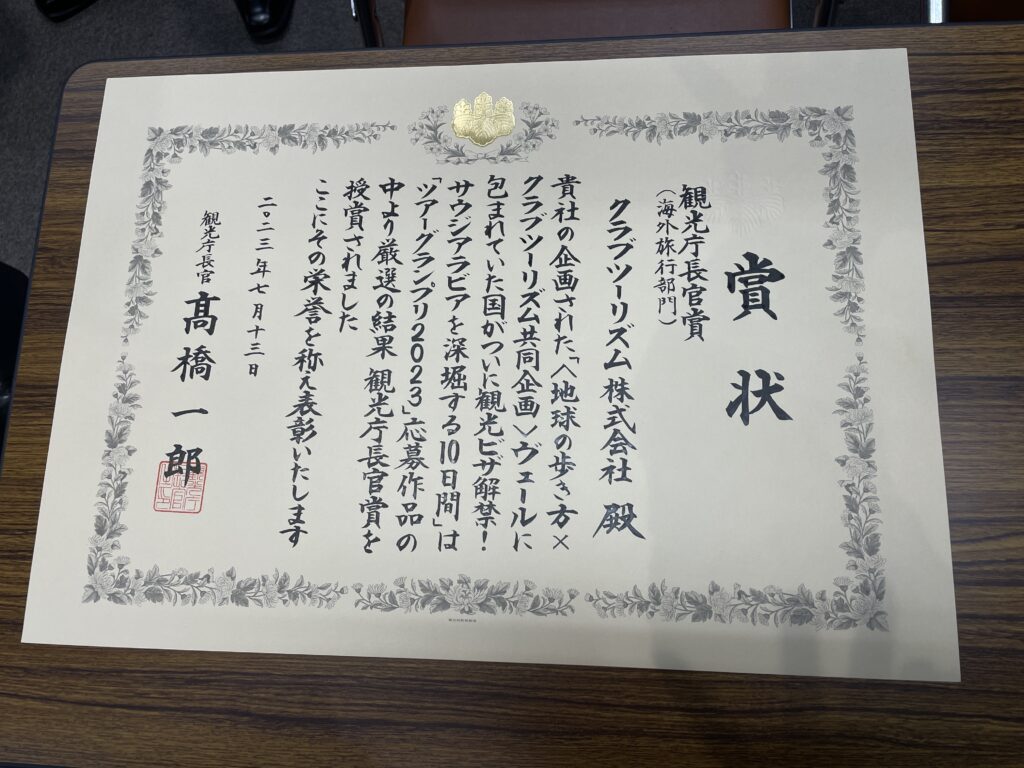 賞状
観光庁長官賞
(海外旅行部門)
クラブツーリズム株式会社 殿
貴社の企画された「〈地球の歩き方×
クラブツーリズム共同企画〉ヴェールに
包まれていた国がついに観光ビザ解禁!
サウジアラビアを深堀する10日間」は
「ツアーグランプリ2023」応募作品の
中より厳選の結果 観光庁長官賞を
授賞されました
ここにその栄誉を称え表彰いたします
二〇二三年七月十三日
観光庁長官 髙橋一郎